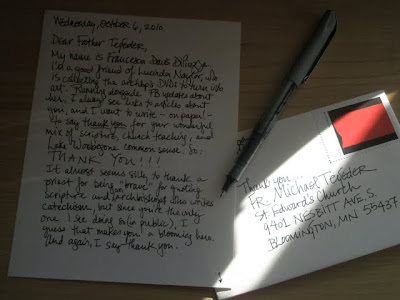 Wednesday, October 6, 2010
Dear Father Tegeder,
My name is Francesca Davis
I'm a good friend of Lucinda Naylor, who
is collecting the archbp's DVDs to turn into
art. Running alongside FB updates about
her, I always see links to articles about
you, and I want to write - on paper! -
to say thank you for your wonderful
mix of scripture, church teaching, and
Lake Wobegone common sense. So:
THANK YOU!!!
It almost seems silly to thank a
priest for being "brave" for quoting
scripture and an archbishop who writes
catechism, but since you're the only
one I see doing so (in public), I
guess that makes you a blooming hero.
And again, I say thank you.
Thank you
FR. Michael Tegeder
St. Edward's Church
9401 NESBITT AVE. S.
BLOOMINGTON, MN 55437